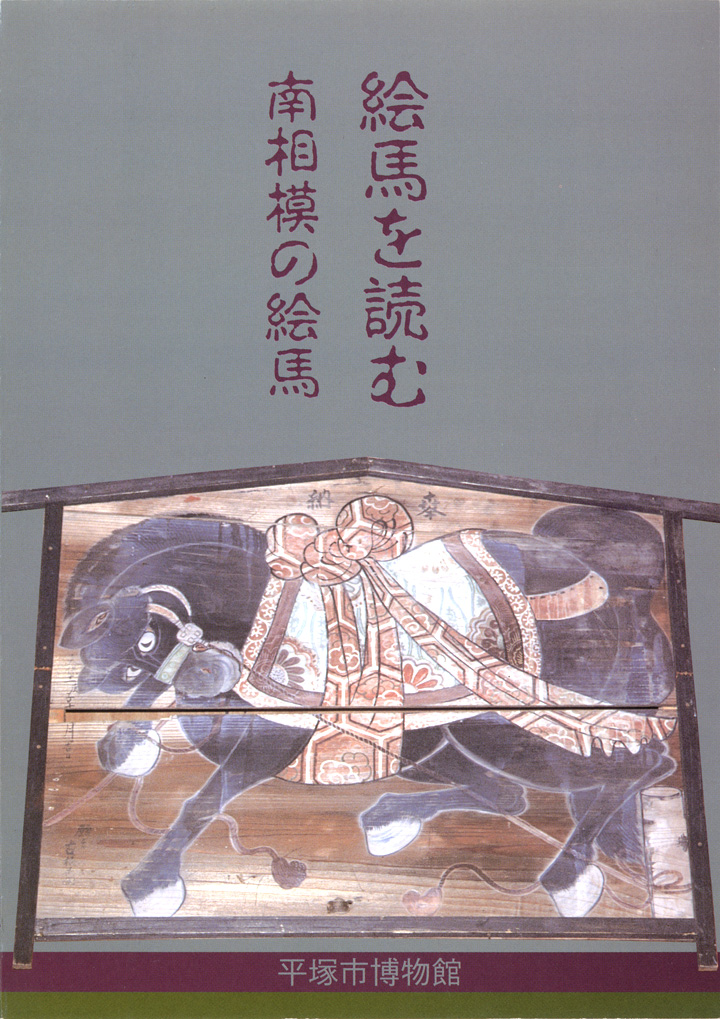 絵馬を読む
南相模の絵馬
奉納
平塚市博物館